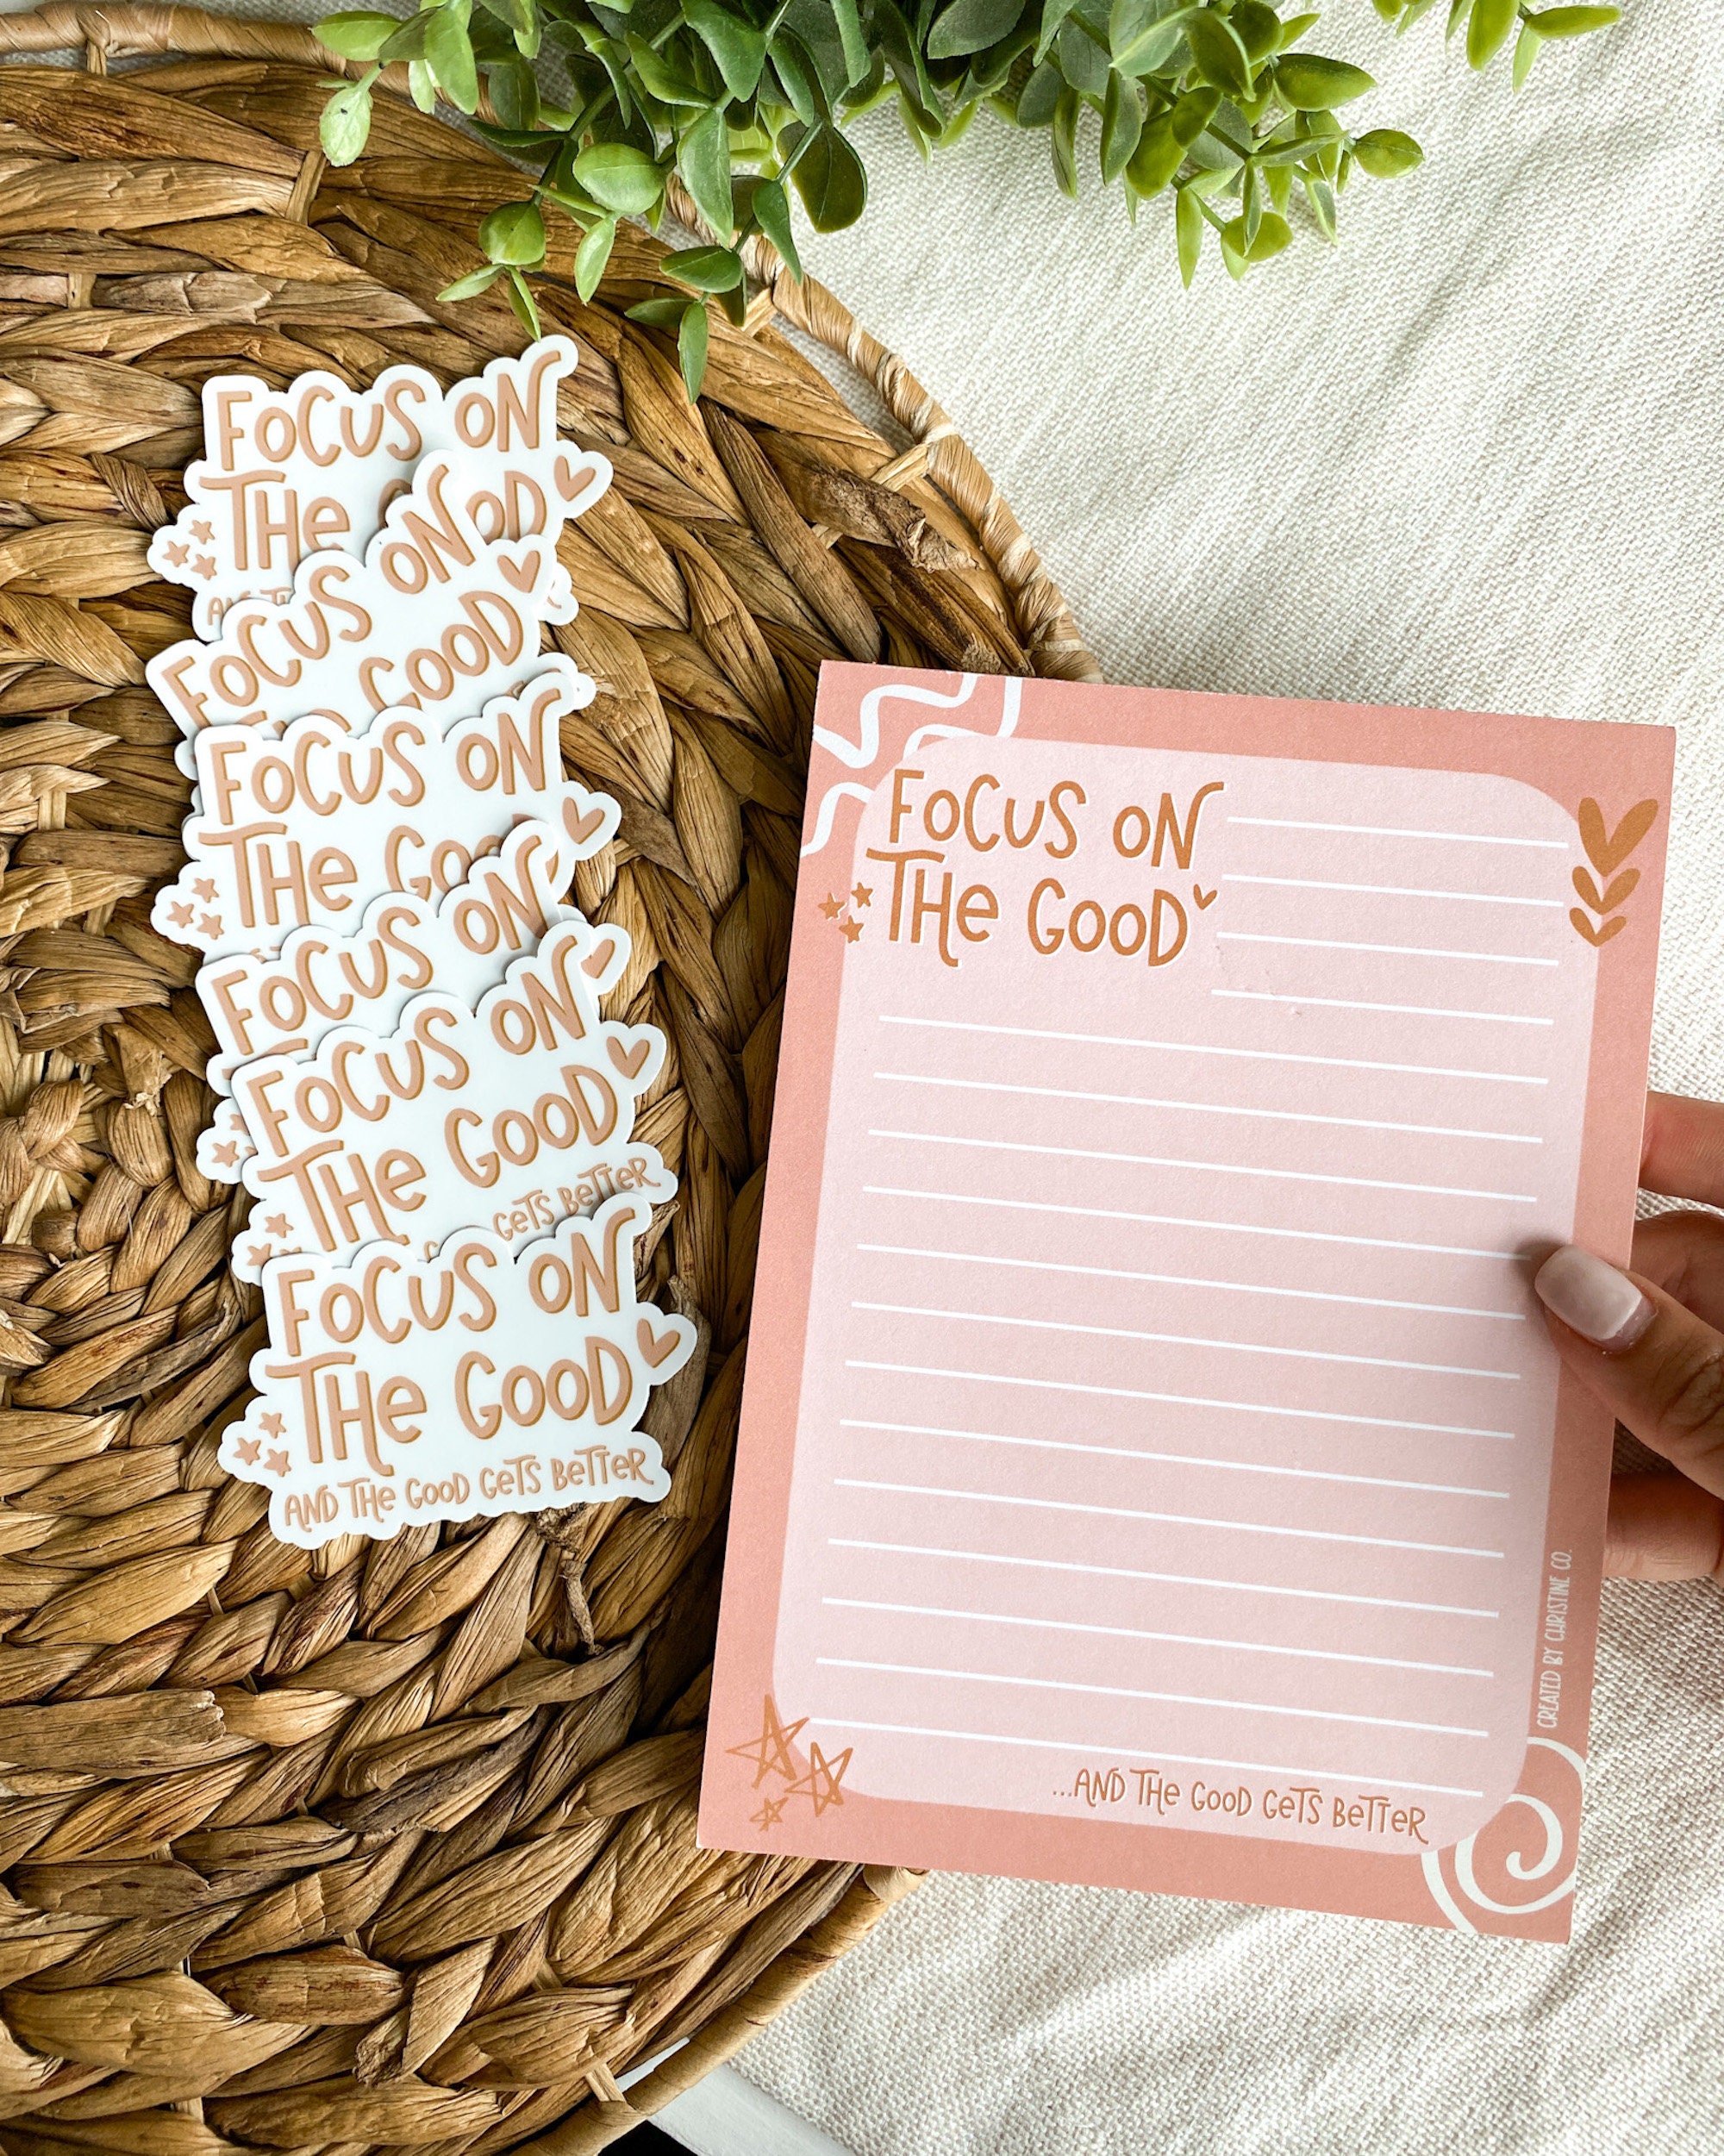 FOCUS ON
THE OOD
FOCUS ON
GOOD
FOCUS ON
THE GOO
FOCUS ON
FOCUS ON
THE GOOD
GETS BETTER
FOCUS ON
THE GOOD
AND THE GOOD GETS BETTER
FOCUS ON
THE GOOD
...AND THE GOOD GETS BETTER
CREATED BY CHRISTINE CO.